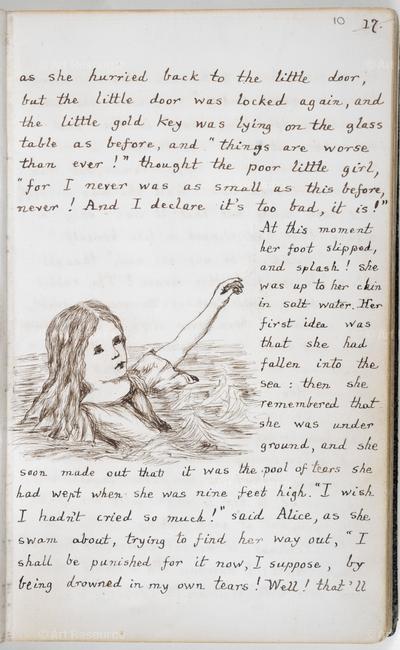 10 17.
as she hurried back to the little door,
but the little door was locked again, and
the little gold key was lying on the glass
table as before, and "things are worse
than ever!" thought the poor little girl,
"for I never was as small as this before,
never! And I declare it's too bad, it is!"
At this moment
her foot slipped,
and splash! she
was up to her chin
in salt water. Her
first idea was
that she had
fallen into the
sea: then she
remembered that
she was under
ground, and she
soon made out that it was the pool of tears she
had wept when she was nine feet high. "I wish
I hadn't cried so much!" said Alice, as she
swam about, trying to find her way out, "I
shall be punished for it now, I suppose, by
being drowned in my own tears! Well! that'll
© Art Resource